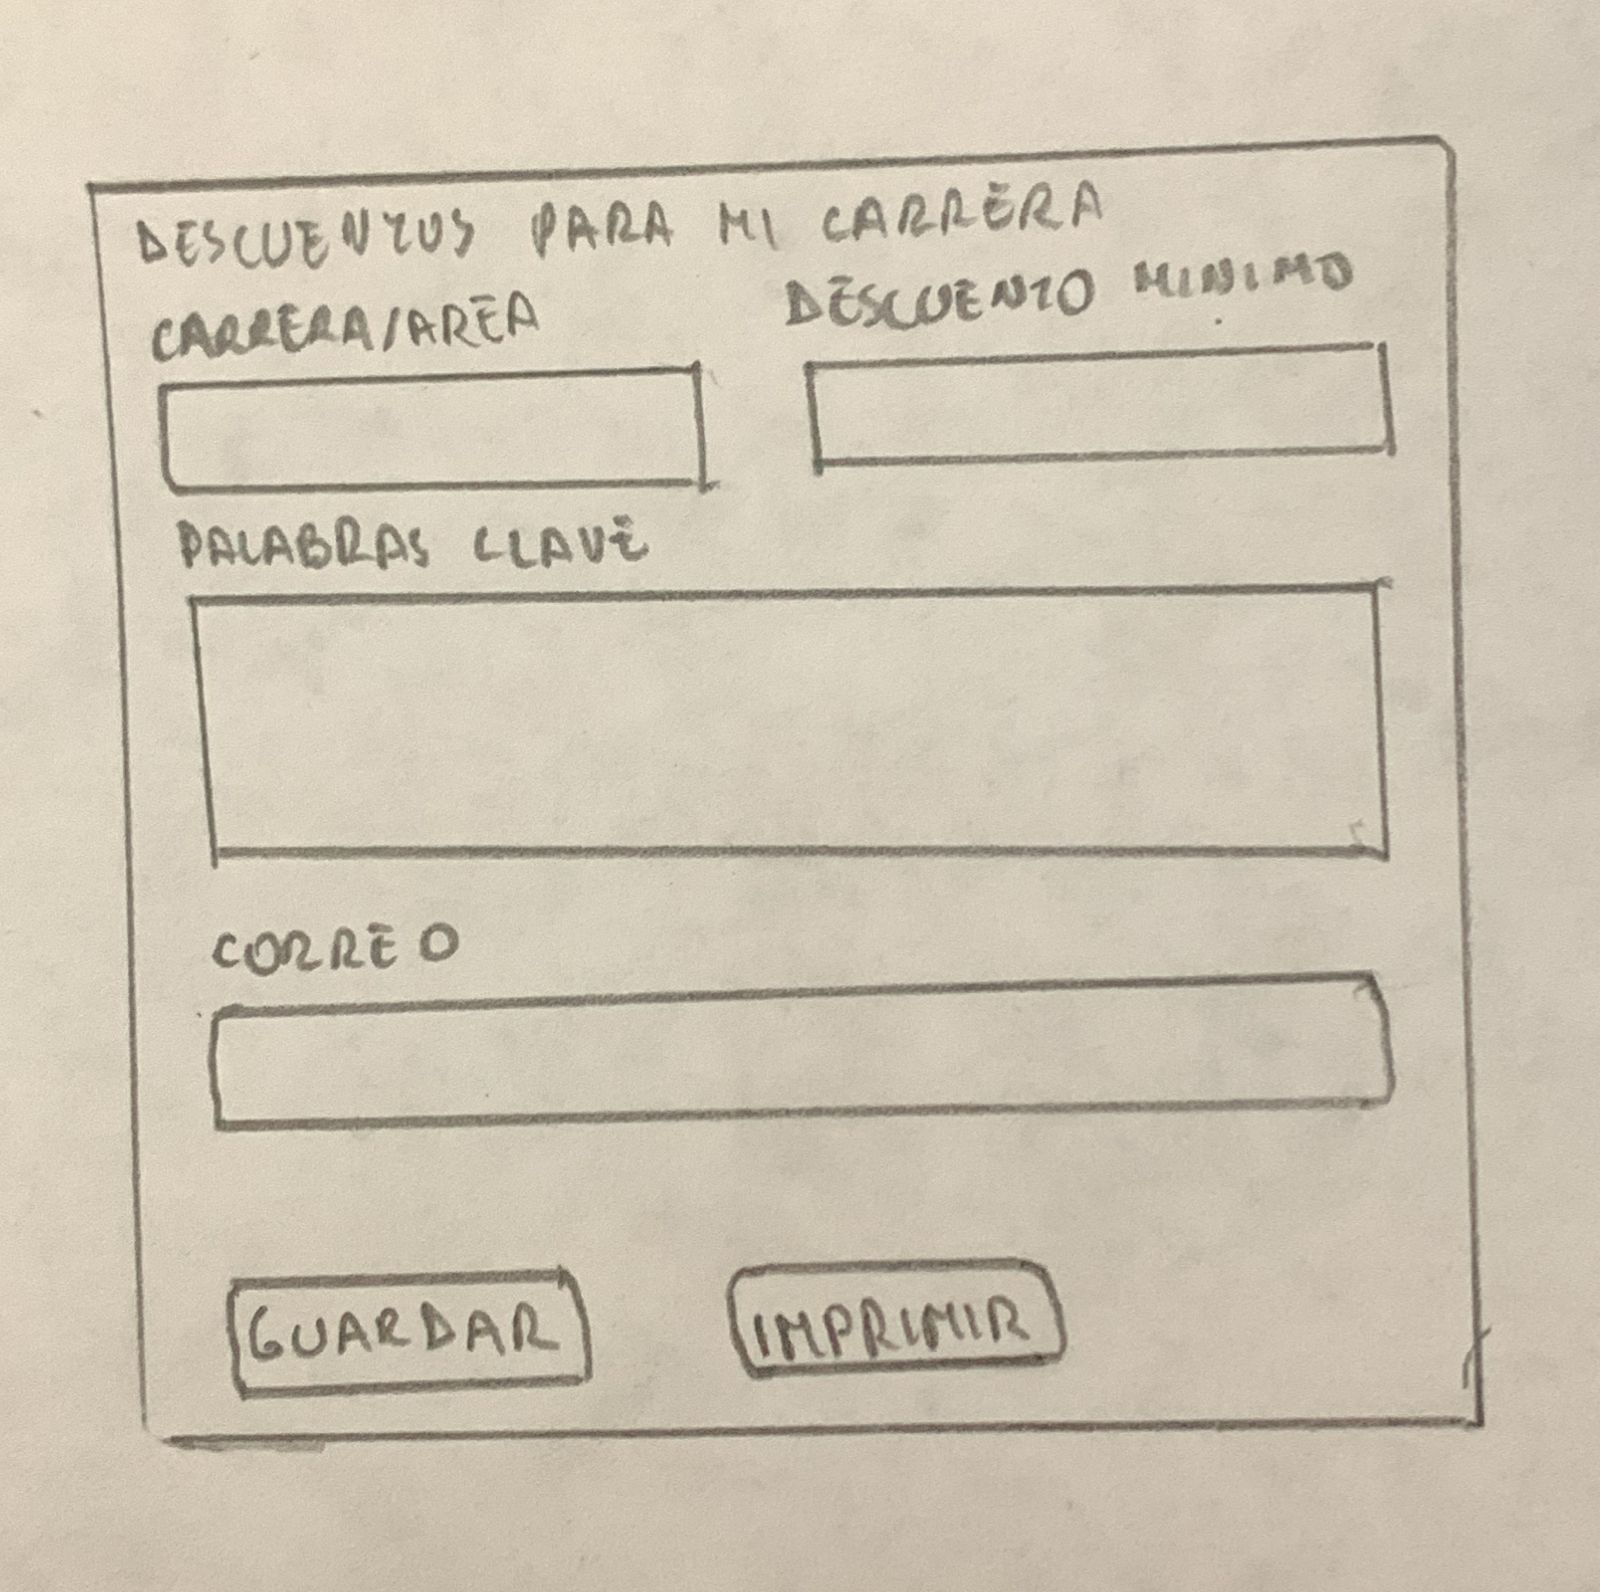 DESCUENTOS PARA MI CARRERA
CARRERA/AREA
DESCUENTO MINIMO
PALABRAS CLAVE
CORREO
GUARDAR
IMPRIMIR